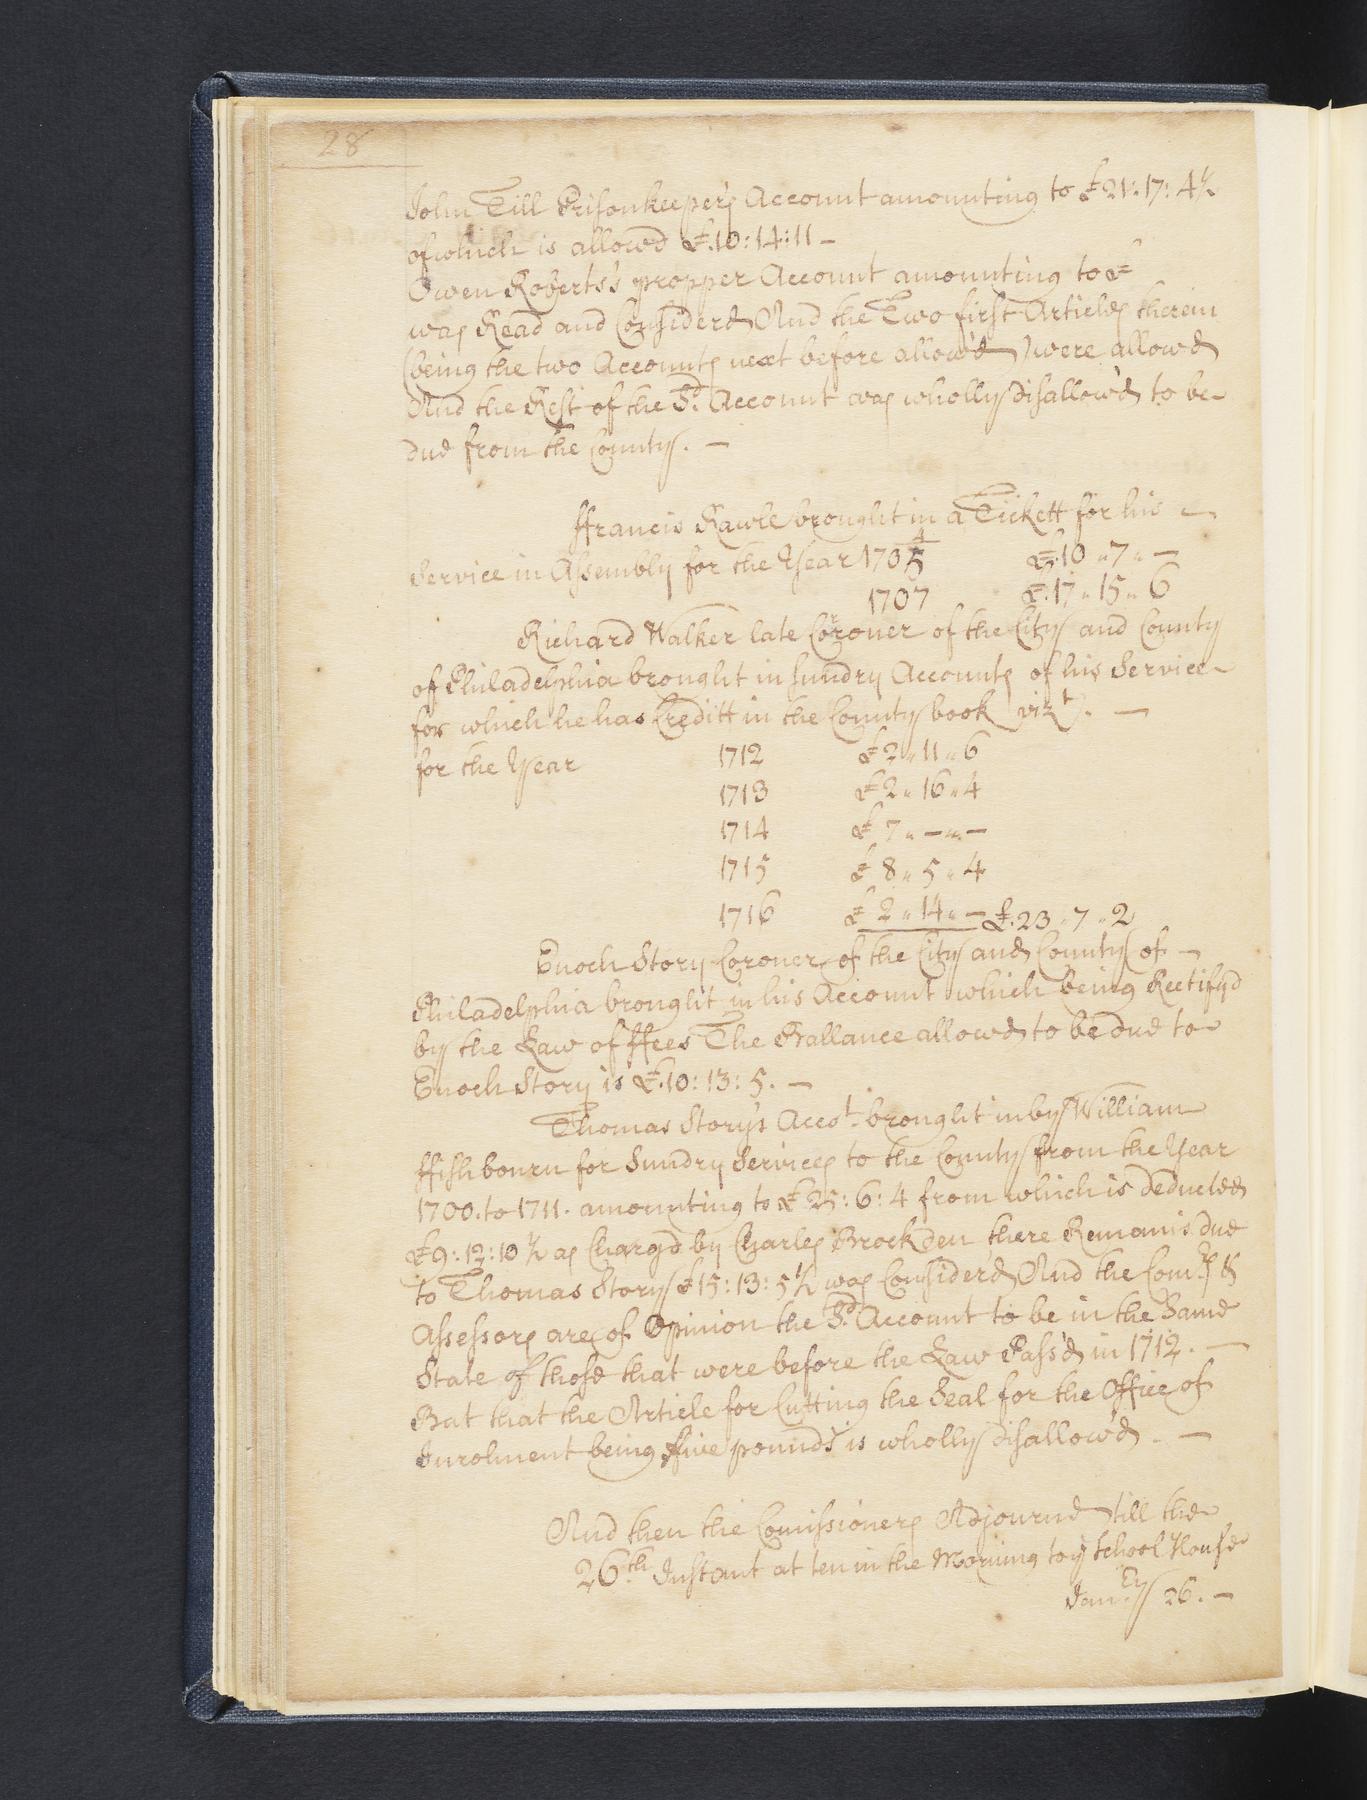 28
John Till Prisonkeepers Account amounting to £21:17:4½
of which is allowd £.10:14:11 —
Owen Roberts's propper Account amounting to £
was Read and Considerd And the Two first Articles therein
(being the two Accounts next before allow'd) were allowd
And the Rest of the Sd. Account was wholly disallow'd to be
due from the County. —
ffrancis Rawle brought in a Tickett for his
Service in Assembly for the Year 1705 4 £.10 " 7 " —
1707 £.17 " 15 " 6
Richard Walker late Coroner of the City and County
of Philadelphia brought in sundry Accounts of his Service
for which he has Creditt in the County book vizt. —
for the Year 1712 £ 2 " 11 " 6
1713 £ 2 " 16 " 4
1714 £ 7 " — " —
1715 £ 8 " 5 " 4
1716 £ 2 " 14 " — £.23 " 7 " 2
Enoch Story Coroner of the City and County of —
Philadelphia brought in his Account which being Rectifyd
by the Law of ffees The Ballance allowd to be due to
Enoch Story is £.10:13:5. —
Thomas Story's Accot. brought in by William
ffishbourn for Sundry Services to the County from the Year
1700. to 1711. amounting to £25:6:4 from which is deducted
£9:12:10½ as Charg'd by Charles Brockden there Remains due
to Thomas Story £15:13:5½ was Considerd And the Comrs. &
Assessors are of Opinion the Sd. Account to be in the Same
State of those that were before the Law Pass'd in 1712. —
But that the Article for Cutting the Seal for the Office of
Inrolment being ffive pounds is wholly disallow'd. —
And then the Comissioners Adjournd till the
26th Instant at ten in the Morning to ye School House
Janry 26. —